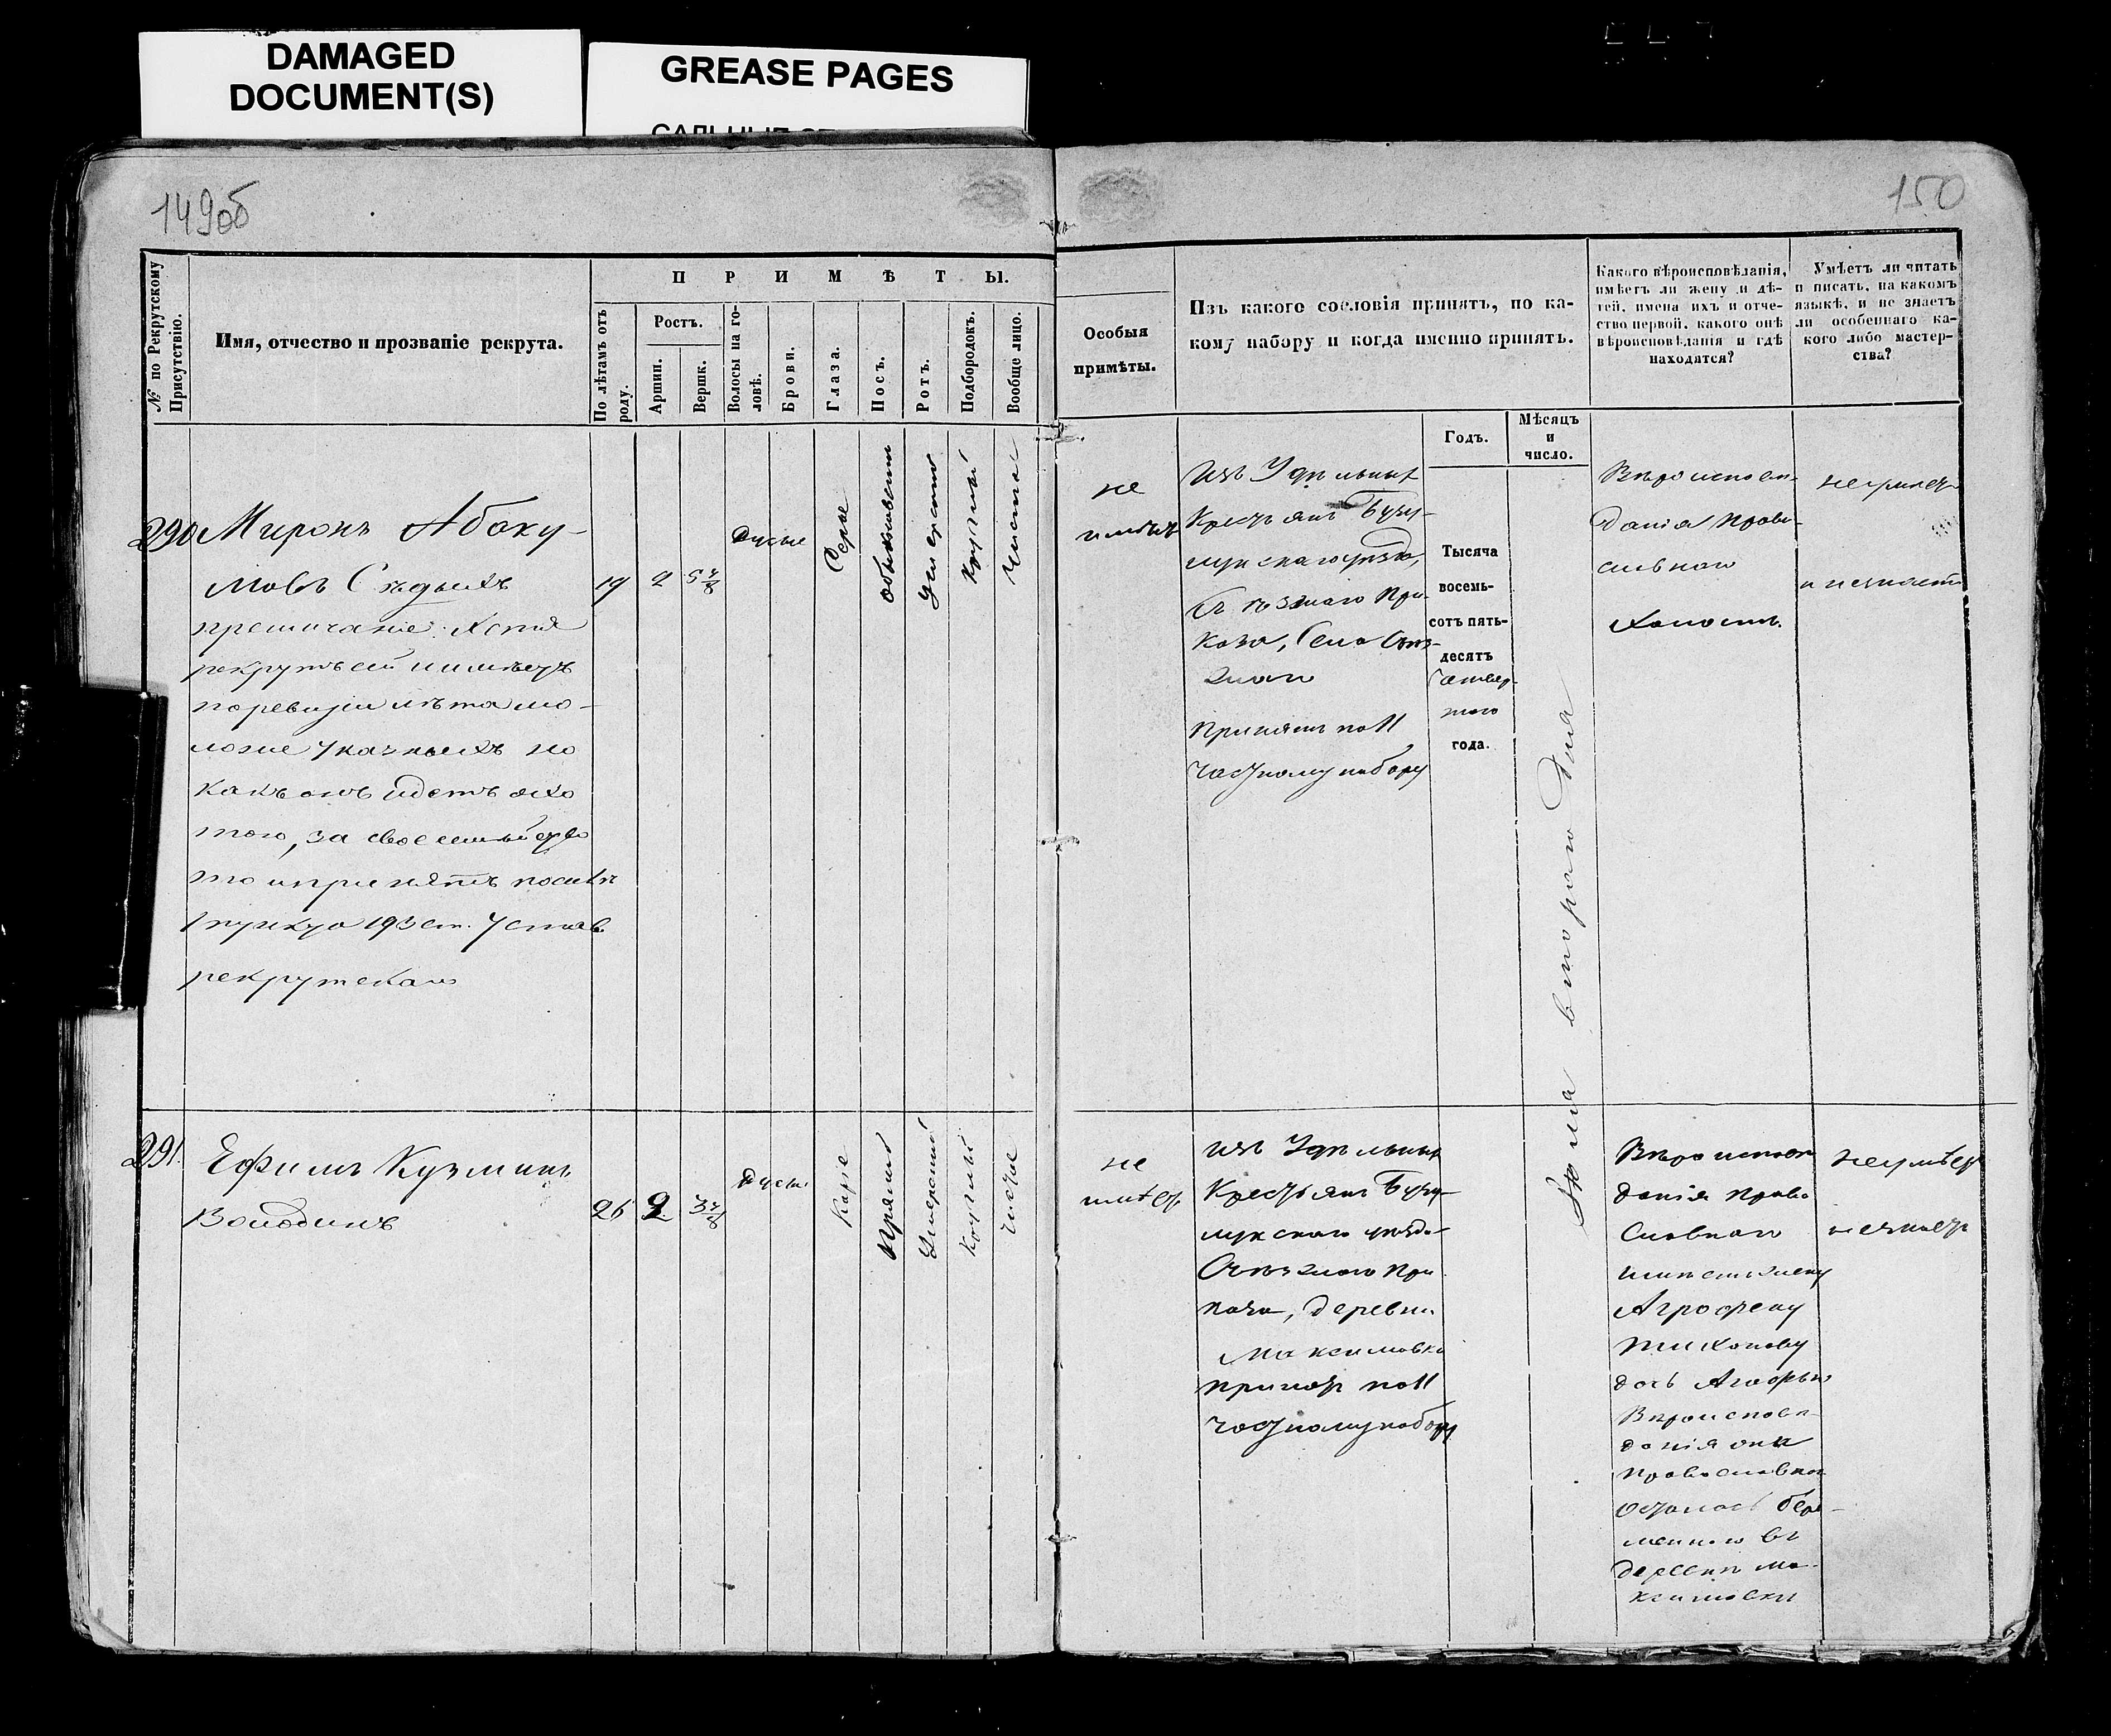 DAMAGED
DOCUMENT(S)
GREASE PAGES
149об
150
№ по Рекрутскому Присутствію.
Имя, отчество и прозваніе рекрута.
ПРИМѢТЫ.
По лѣтамъ отъ роду.
Ростъ.
Аршин.
Вершк.
Волосы на головѣ.
Брови.
Глаза.
Носъ.
Ротъ.
Подбородокъ.
Вообще лицо.
Особыя
примѣты.
Изъ какого сословія принятъ, по ка-
кому набору и когда именно принятъ.
Годъ.
Мѣсяцъ
и
число.
Какого вѣроисповѣданія,
имѣетъ ли жену и дѣ-
тей, имена ихъ и отче-
ство первой, какого онѣ
вѣроисповѣданія и гдѣ
находятся?
Умѣетъ ли читать
и писать, на какомъ
языкѣ, и не знаетъ
ли особеннаго ка-
кого либо мастер-
ства?
290
Миронъ Абаку-
мовъ Сѣдыхъ
примѣчаніе: Хотя
рекрутъ сей и имѣетъ
по ревизіи лѣта мо-
ложе указныхъ но
какъ онъ идетъ охо
тою, за свое семейство
то и принятъ по силѣ
193 ст. Устав
рекрутскаго
19
2
5 4/8
русые
Серые
обыкновенн
умеренной
Круглой
Чистое
не
имѣетъ
Изъ Удѣльныхъ
Крестьянъ Бузу-
лукскаго уѣзда,
При-
каза, Села
Принятъ по 11
частному набору
Тысяча
восемь-
сотъ пять-
десятъ
четвер-
таго
года.
Іюля втораго дня
Вѣроиспове-
данія Право-
славнаго
Холостъ.
неумеетъ
и незнаетъ
291.
Ефимъ Кузминъ
Володинъ
26
2
3 4/8
русы
Каріе
Прямой
Умеренный
Круглый
Чистое
не
имѣет
Изъ Удѣльныхъ
Крестьянъ Бузу-
лукскаго уѣзда
При
каза, деревни
Максимовки
принятъ по 11
частному набору
Вѣроиспов
данія Право
Славнаго
имѣетъ жену
Агрофену
Тихонову
дочь Агафью
Вѣроиспов-
данія они
православнаго
осталась бере-
менною въ
деревни Ма-
ксимовки
неумѣет
и незнает